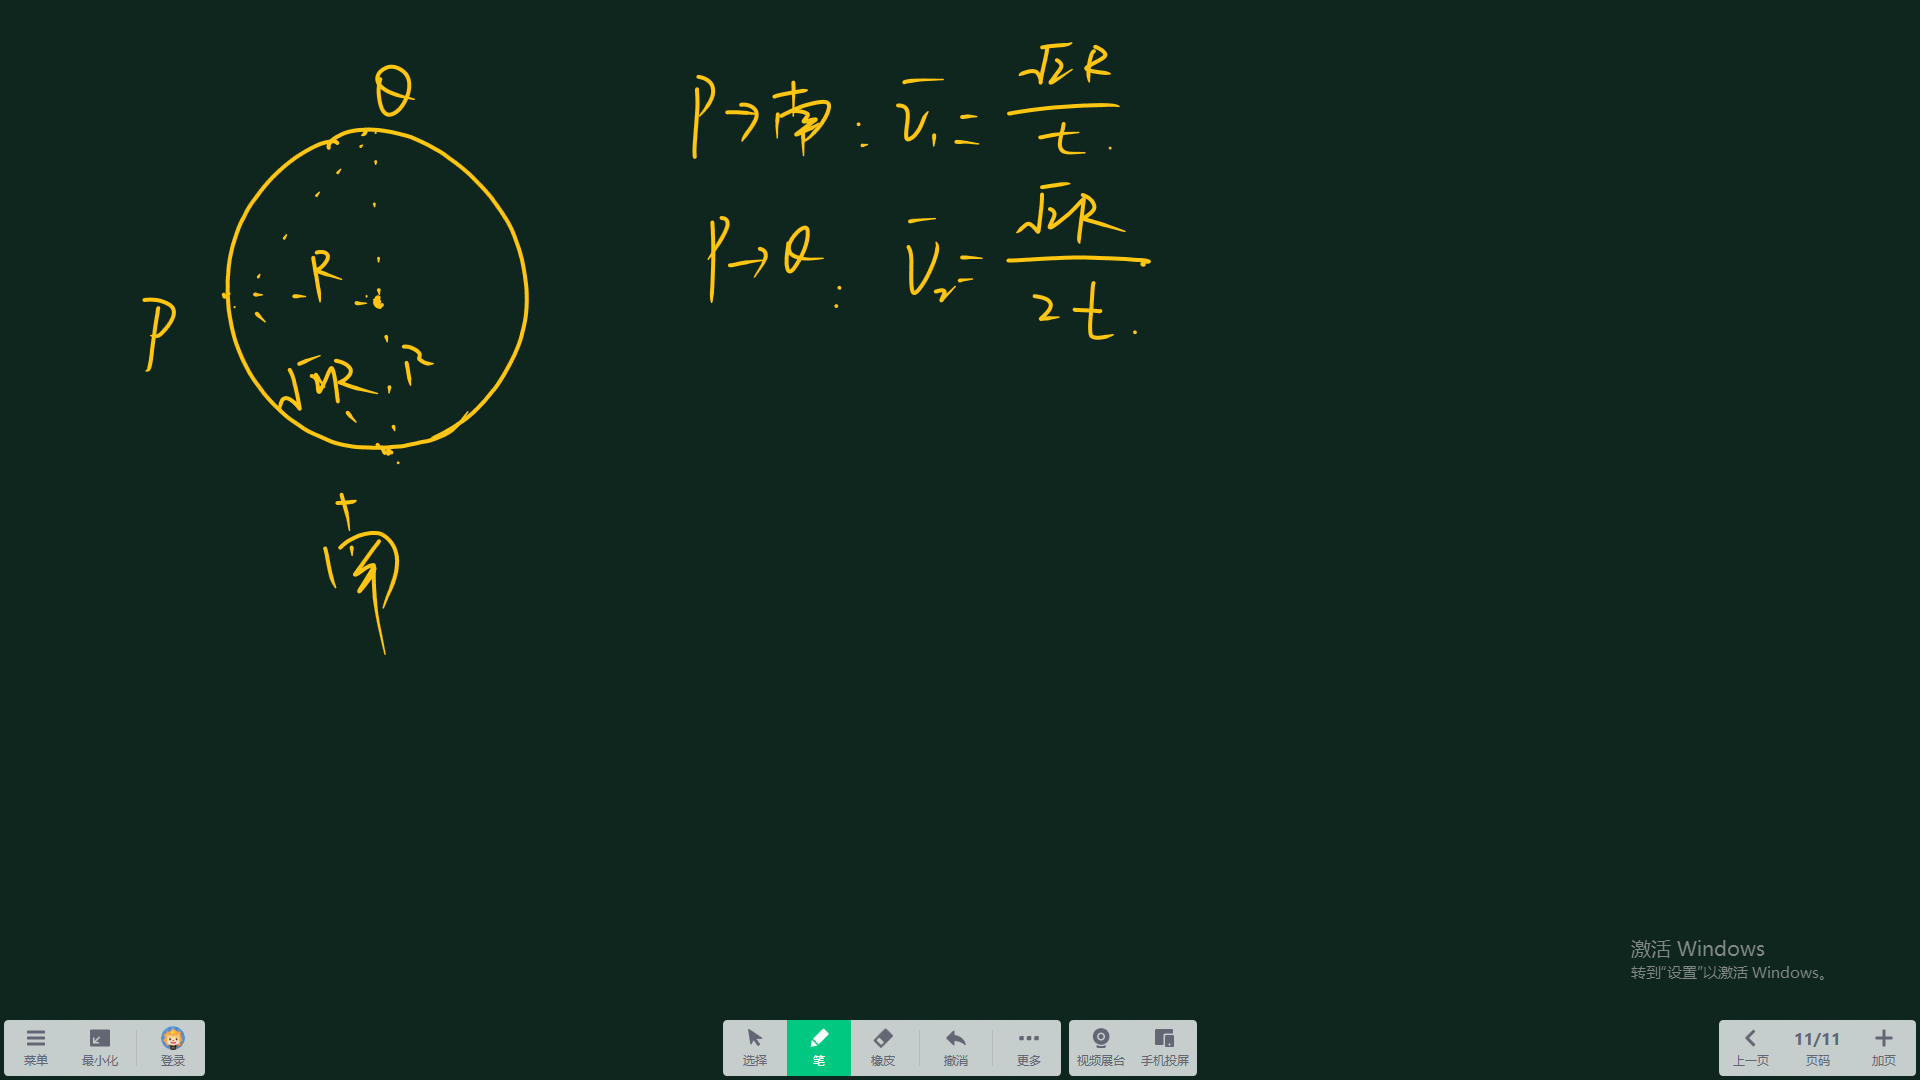 Q
P→南: v̄₁ = √2R/t.
P→Q: v̄₂ = √2R/2t.
R
P
√2R R
南
激活 Windows
转到“设置”以激活 Windows。
菜单 最小化 登录 选择 笔 橡皮 撤消 更多 视频展台 手机投屏 上一页 11/11 页码 加页